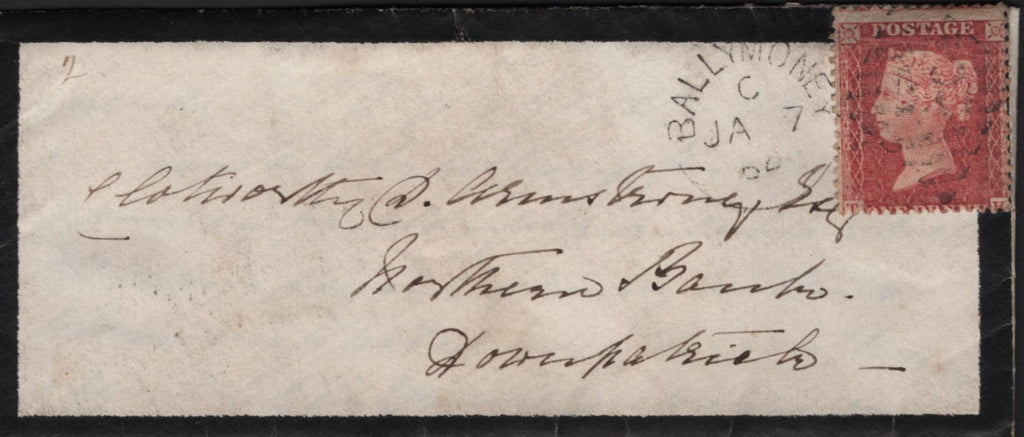 POSTAGE
BALLYMONEY
C
JA 7
64
Clotworthy D. Armstrong, Esq
Northern Bank.
Downpatrick —